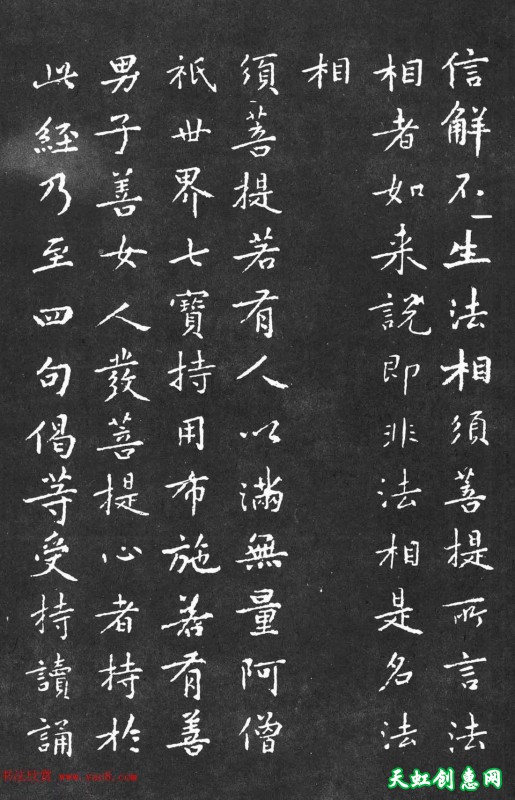 信解不生法相須菩提所言法
相者如来說即非法相是名法
相
須菩提若有人以滿無量阿僧
祇世界七寶持用布施若有善
男子善女人發菩提心者持於
此經乃至四句偈等受持讀誦
天虹创惠网